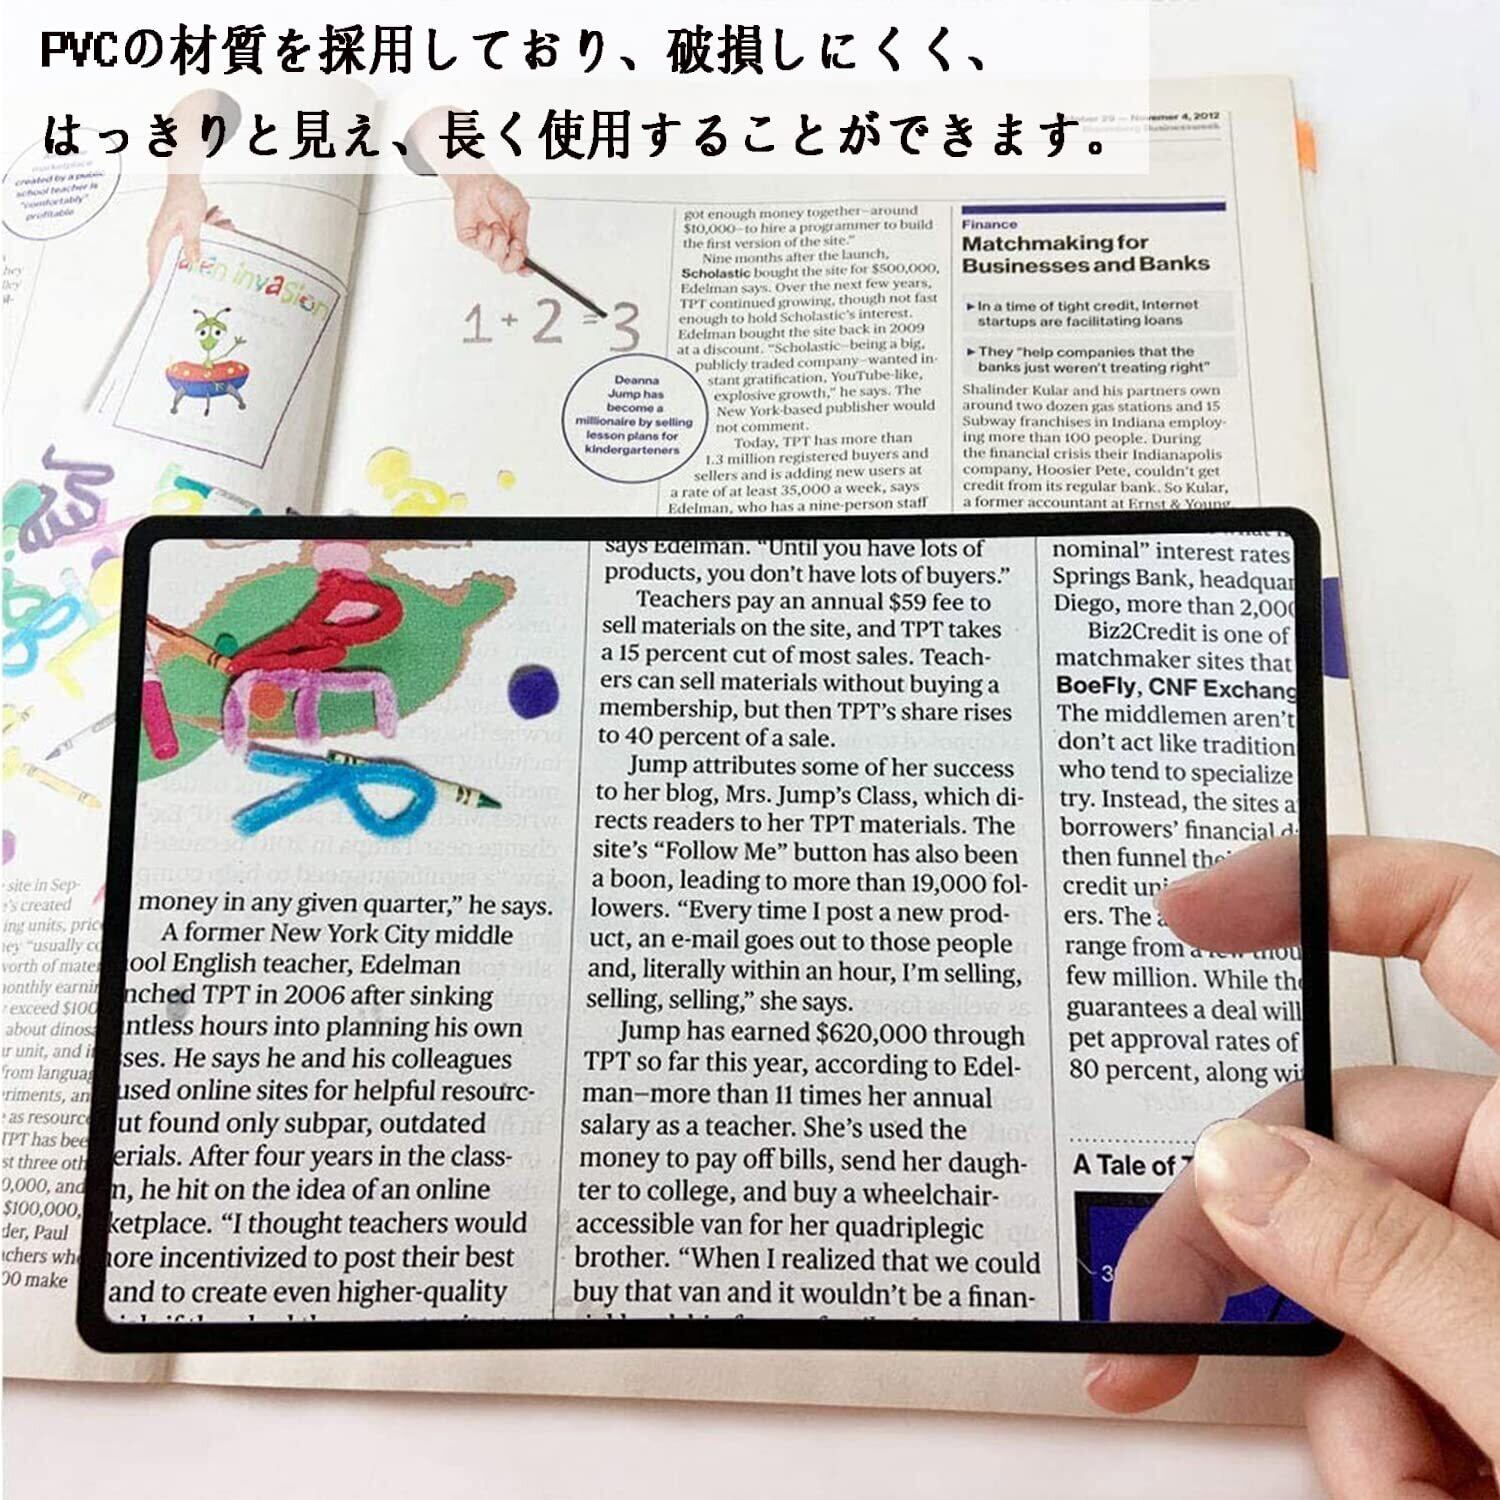 PVCの材質を採用しており、破損しにくく、
はっきりと見え、長く使用することができます。
November 4, 2012
created by a public
school teacher is
"comfortably"
profitable
alien invasion
1 + 2 = 3
Deanna
Jump has
become a
millionaire by selling
lesson plans for
kindergarteners
got enough money together—around
$10,000—to hire a programmer to build
the first version of the site."
Nine months after the launch,
Scholastic bought the site for $500,000,
Edelman says. Over the next few years,
TPT continued growing, though not fast
enough to hold Scholastic's interest.
Edelman bought the site back in 2009
at a discount. "Scholastic—being a big,
publicly traded company—wanted in-
stant gratification, YouTube-like,
explosive growth," he says. The
New York-based publisher would
not comment.
Today, TPT has more than
1.3 million registered buyers and
sellers and is adding new users at
a rate of at least 35,000 a week, says
Edelman, who has a nine-person staff
Finance
Matchmaking for
Businesses and Banks
▶In a time of tight credit, Internet
startups are facilitating loans
▶They "help companies that the
banks just weren't treating right"
Shalinder Kular and his partners own
around two dozen gas stations and 15
Subway franchises in Indiana employ-
ing more than 100 people. During
the financial crisis their Indianapolis
company, Hoosier Pete, couldn't get
credit from its regular bank. So Kular,
a former accountant at Ernst & Young
site in Sep-
's created
ing units, pric
ey "usually co
worth of mater
onthly earnin
exceed $100
about dinos
r unit, and i
from languag
riments, an
as resource
TPT has bee
st three oth
0,000, and
$100,000,
der, Paul
chers wh
00 make
money in any given quarter," he says.
A former New York City middle
ool English teacher, Edelman
nched TPT in 2006 after sinking
ntless hours into planning his own
ses. He says he and his colleagues
used online sites for helpful resourc-
ut found only subpar, outdated
erials. After four years in the class-
m, he hit on the idea of an online
ketplace. "I thought teachers would
ore incentivized to post their best
and to create even higher-quality
says Edelman. "Until you have lots of
products, you don't have lots of buyers."
Teachers pay an annual $59 fee to
sell materials on the site, and TPT takes
a 15 percent cut of most sales. Teach-
ers can sell materials without buying a
membership, but then TPT's share rises
to 40 percent of a sale.
Jump attributes some of her success
to her blog, Mrs. Jump's Class, which di-
rects readers to her TPT materials. The
site's "Follow Me" button has also been
a boon, leading to more than 19,000 fol-
lowers. "Every time I post a new prod-
uct, an e-mail goes out to those people
and, literally within an hour, I'm selling,
selling, selling," she says.
Jump has earned $620,000 through
TPT so far this year, according to Edel-
man—more than 11 times her annual
salary as a teacher. She's used the
money to pay off bills, send her daugh-
ter to college, and buy a wheelchair-
accessible van for her quadriplegic
brother. "When I realized that we could
buy that van and it wouldn't be a finan-
nominal" interest rates
Springs Bank, headquar
Diego, more than 2,000
Biz2Credit is one of
matchmaker sites that
BoeFly, CNF Exchang
The middlemen aren't
don't act like tradition
who tend to specialize
try. Instead, the sites a
borrowers' financial d
then funnel the
credit uni
ers. The
range from a few thou
few million. While the
guarantees a deal will
pet approval rates of
80 percent, along wi
A Tale of
3